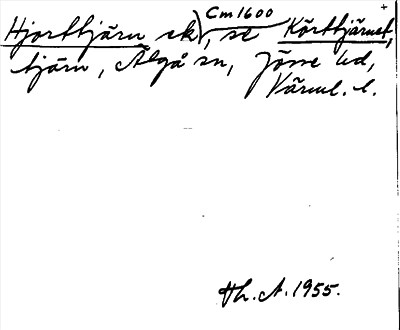 Cm 1600
Hjorttjärn sk), se Körttjärnet,
tjärn, Älgå sn, Jösse hd,
Värml. l.
Hh. A. 1955.